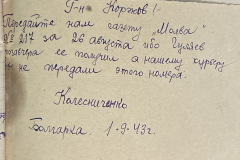 Г-н Коржов!
Передайте нам газету „Молва"
№ 217 за 26 августа ибо Гуляев
позавчера ее получил а нашему курьеру
вы не передали этого номера.
Колесниченко
Болгарка. 1-9-43г.